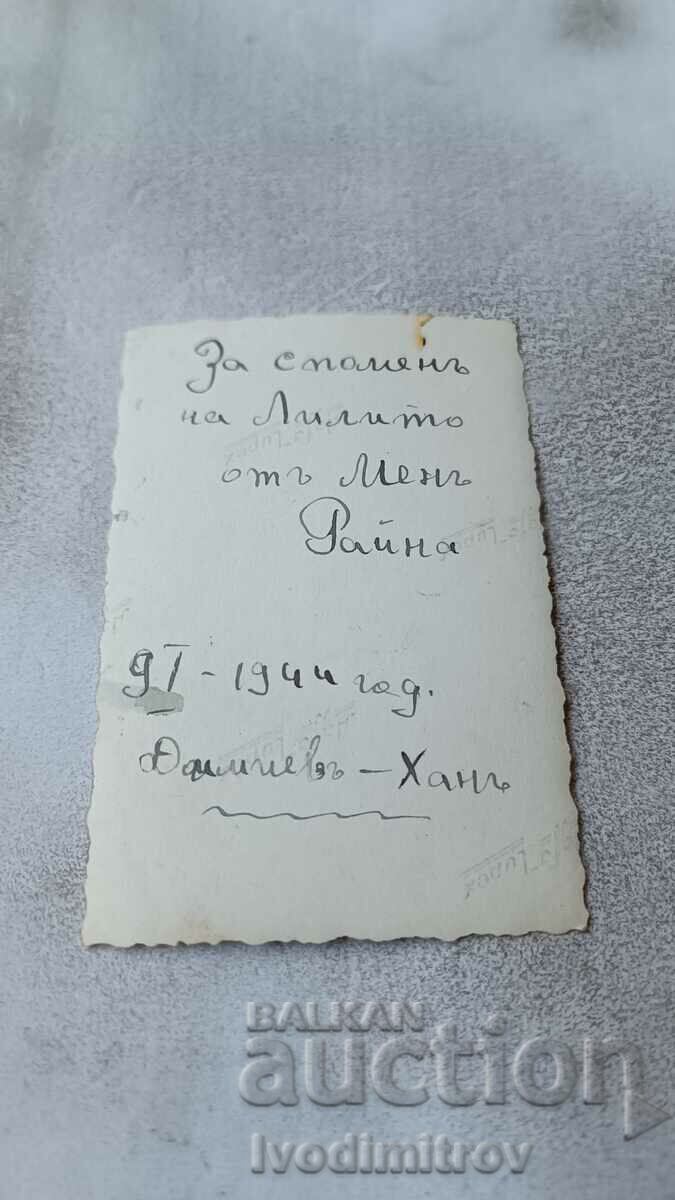 За споменъ
на Лилито
отъ Менъ
Райна
9 I - 1944 год.
Ханъ
BALKAN
auction
Ivodimitrov